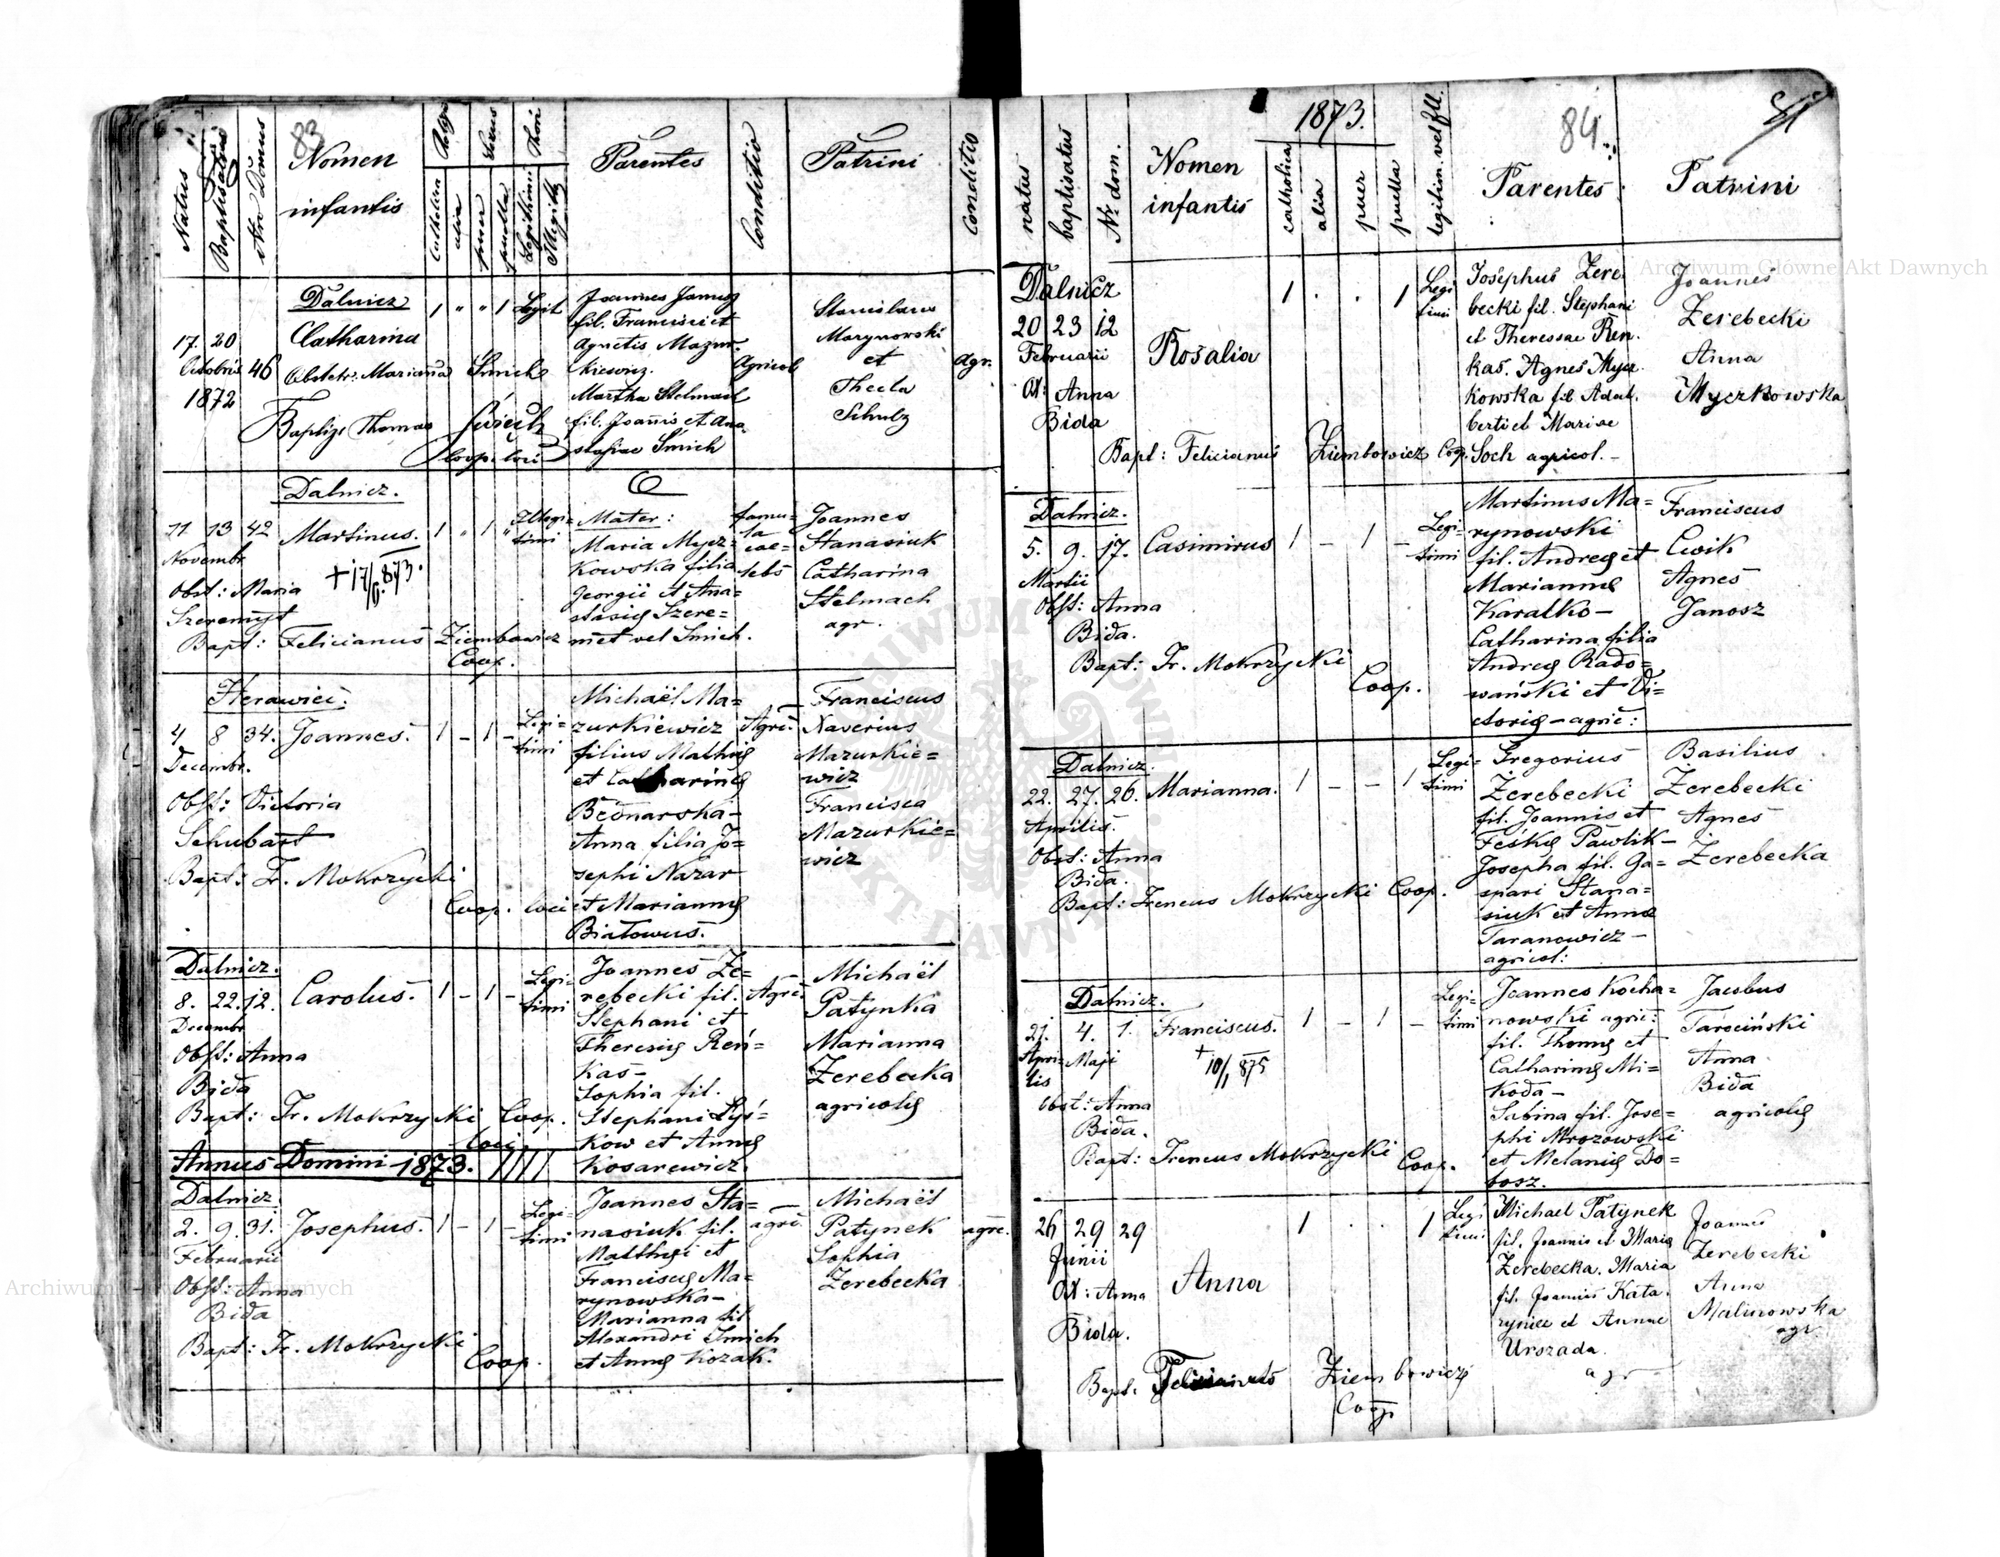 83
Natus
Baptisatus
Nrs Domus
Nomen
infantis
Religio
Catholica
alia
Sexus
puer
puella
Thori
Legitimi
Illegiti
Parentes
Conditio
Patrini
Conditio
Dalnicz
17. 20 46
Octobris
1872
Catharina
Obstetr: Marianna Śmich
Baptizs Thomas Świech
Coop. loci
1 " " 1 Legit
Joannes Janusz
fil. Francisci et
Agnetis Mazur-
kiewicz.
Martha Stelmach
fil. Joannis et Ana-
stasiae Śmich
Agricol
Stanislaus
Marynowski
et
Thecla
Schulz
Agr.
Dalnicz.
11 13 42 Martinus. 1 " 1 " Illegi-
timi
Novembr
+ 17/6 873.
Obst: Maria
Szeremęt
Bapt: Felicianus Ziembowicz
Coop.
Mater:
Maria Mycz-
kowska filia
Georgii et Ana-
stasię Szere-
męt vel Śmich.
famu-
la
cae-
lebs
Joannes
Stanasiuk
Catharina
Stelmach
agr.
4 8 34. Joannes. 1 - 1 - Legi-
timi
Decembr.
Obst: Victoria
Schubart
Bapt: Ir. Mokrzycki
Coop. loci
Michaël Ma-
zurkiewicz
filius Mathię
et Catharinę
Bednarska-
Anna filia Jo-
sephi Nazar
et Mariannę
Białowus.
Agric.
Franciscus
Xaverius
Mazurkie-
wicz
Francisca
Mazurkie-
wicz
Dalnicz.
8. 22. 12. Carolus. 1 - 1 - Legi-
timi
Decembr
Obst: Anna
Bida
Bapt: Ir. Mokrzycki Coop.
loci
Joannes Że-
rebecki fil.
Stephani et
Theresię Reń-
kas-
Sophia fil.
Stephani Łyś-
kow et Annę
Kosarewicz.
Agric.
Michaël
Patynka
Marianna
Żerebecka
agricolę
Annus Domini 1873.
Dalnicz.
2. 9. 31. Josephus. 1 - 1 - Legi-
timi
Februarii
Obst: Anna
Bida
Bapt: Ir. Mokrzycki
Coop.
Joannes Sta-
nasiuk fil.
Matthęi et
Franciscę Ma-
rynowska-
Marianna fil
Alexandri Śmich
et Annę Kozak.
agric.
Michaël
Patynek
Sophia
Żerebecka
agric.
1873.
84.
natus
baptisatus
Nr. dom.
Nomen
infantis
catholica
alia
puer
puella
legitim. vel ill.
Parentes
Patrini
Dalnicz
20 23 12
Februarii
Ot: Anna
Bida
Rosalia
1 . . 1 Legi
timi
Bapt: Felicianus Ziembowicz Cop.
Josephus Zere
becki fil. Stephani
et Theressae Ren-
kas. Agnes Mycz-
kowska fil Adal-
berti et Mariae
Soch agricol.-
Joannes
Zerebecki
Anna
Myczkowska
Dalnicz.
5. 9. 17. Casimirus 1 - 1 - Legi-
timi
Martii
Obst: Anna
Bida.
Bapt: Ir. Mokrzycki
Coop.
Martinus Ma-
rynowski
fil. Andreę et
Mariannę
Karalko-
Catharina filia
Andreę Rado-
wański et Vi-
ctorię-agric:
Franciscus
Cwik
Agnes
Janosz
Dalnicz.
22. 27. 26. Marianna. 1 - - 1 Legi-
timi
Aprilis.
Obst: Anna
Bida.
Bapt: Ireneus Mokrzycki Coop.
Gregorius
Żerebecki
fil. Joannis et
Feśkę Pawlik-
Josepha fil. Ga-
spari Stana-
siuk et Annae
Taranowicz-
agricol:
Basilius
Zerebecki
Agnes
Zerebecka
Dalnicz.
21. 4. 1. Franciscus. 1 - 1 - Legi-
timi
Apri-
lis
Maji
+ 10/1 875
Obst: Anna
Bida.
Bapt: Ireneus Mokrzycki Coop.
Joannes Kocha-
nowski agric:
fil. Thomę et
Catharinę Mi-
koda-
Sabina fil. Jose-
phi Mrozowski
et Melanię Do-
bosz.
Jacobus
Tarociński
Anna
Bida
agricolę
26 29 29
Junii
Ot: Anna
Bida.
Anna
1 . . 1 Legi
timi
Bapt: Felicianus Ziembowicz
Coop
Michael Patynek
fil. Joannis et Maria
Zerebecka. Maria
fil. Joannis Kata-
ryniec et Annae
Urszada.
agr
Joannes
Zerebecki
Anna
Malinowska
agr
Archiwum Główne Akt Dawnych